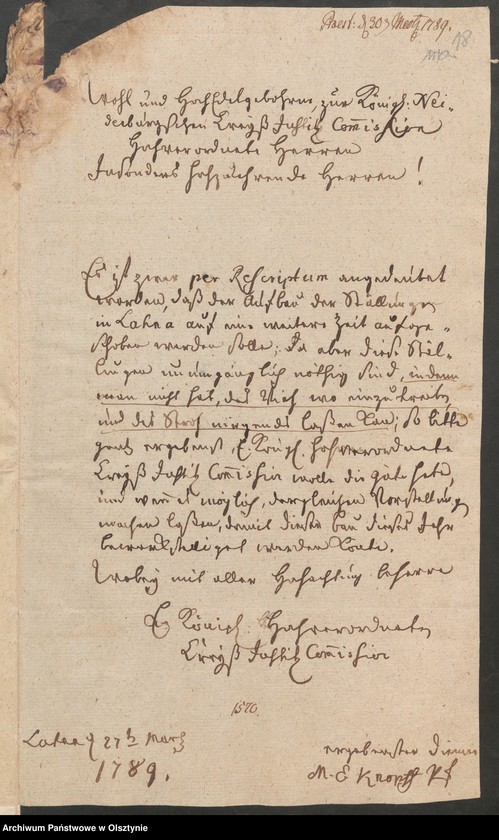 Praes: d 30 Mertz 1789.
18
Wohl und HochEdelgebohrne, zur Königl. Nei-
denburgschen Creyß Justitz Commission
Hochverordnete Herren
Insonders hochzuehrende Herren!
Es ist zwar per Rescriptum angedeutet
worden, daß der Aufbau der Stallungen
in Lahna auf eine weitere Zeit aufge-
schoben werden solle; Da aber diese Stal-
lungen unumgänglich nöthig sind, indem
man nicht hat, das Vieh wo einzutreiben
und das Stroh nirgends laßen kan; so bitte
gantz ergebenst, E. Königl. Hochverordnete
Creyß Justitz Commission wolle die güte haben,
und wenn es möglich, dergleichen Vorstellungen
machen laßen, damit dieser bau dieses Jahr
bewerkstelliget werden könte.
Wobey mit aller Hochachtung beharre
Ew Königl. Hochverordneten
Creyß Justitz Commission
1570.
Lahna d 27t Martz
1789.
ergebenster Diener
M. E Knopff Pf
Archiwum Państwowe w Olsztynie